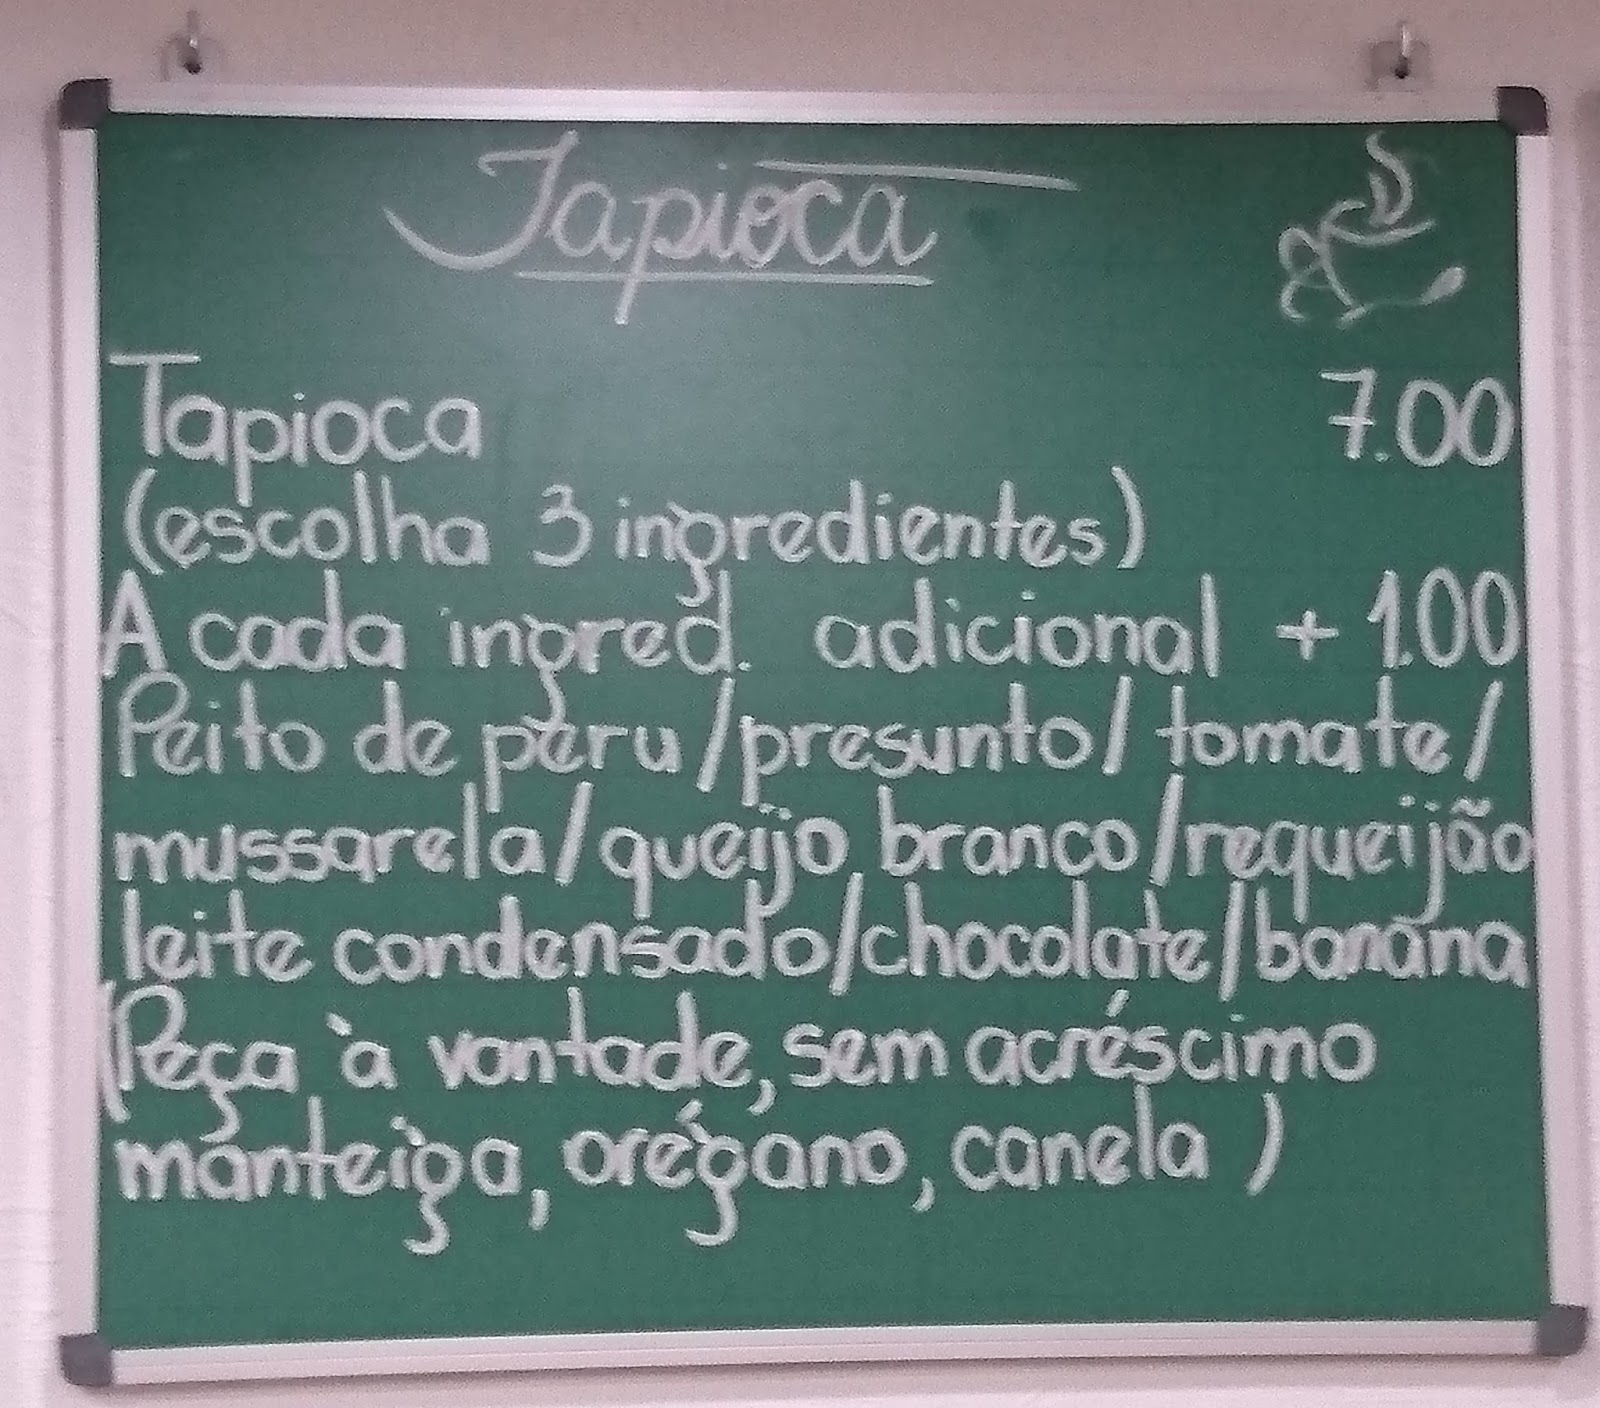 Tapioca
Tapioca 7.00
(escolha 3 ingredientes)
A cada ingred. adicional + 1.00
Peito de peru/presunto/tomate/
mussarela/queijo branco/requeijão
leite condensado/chocolate/banana
(Peça à vontade, sem acréscimo
manteiga, orégano, canela)